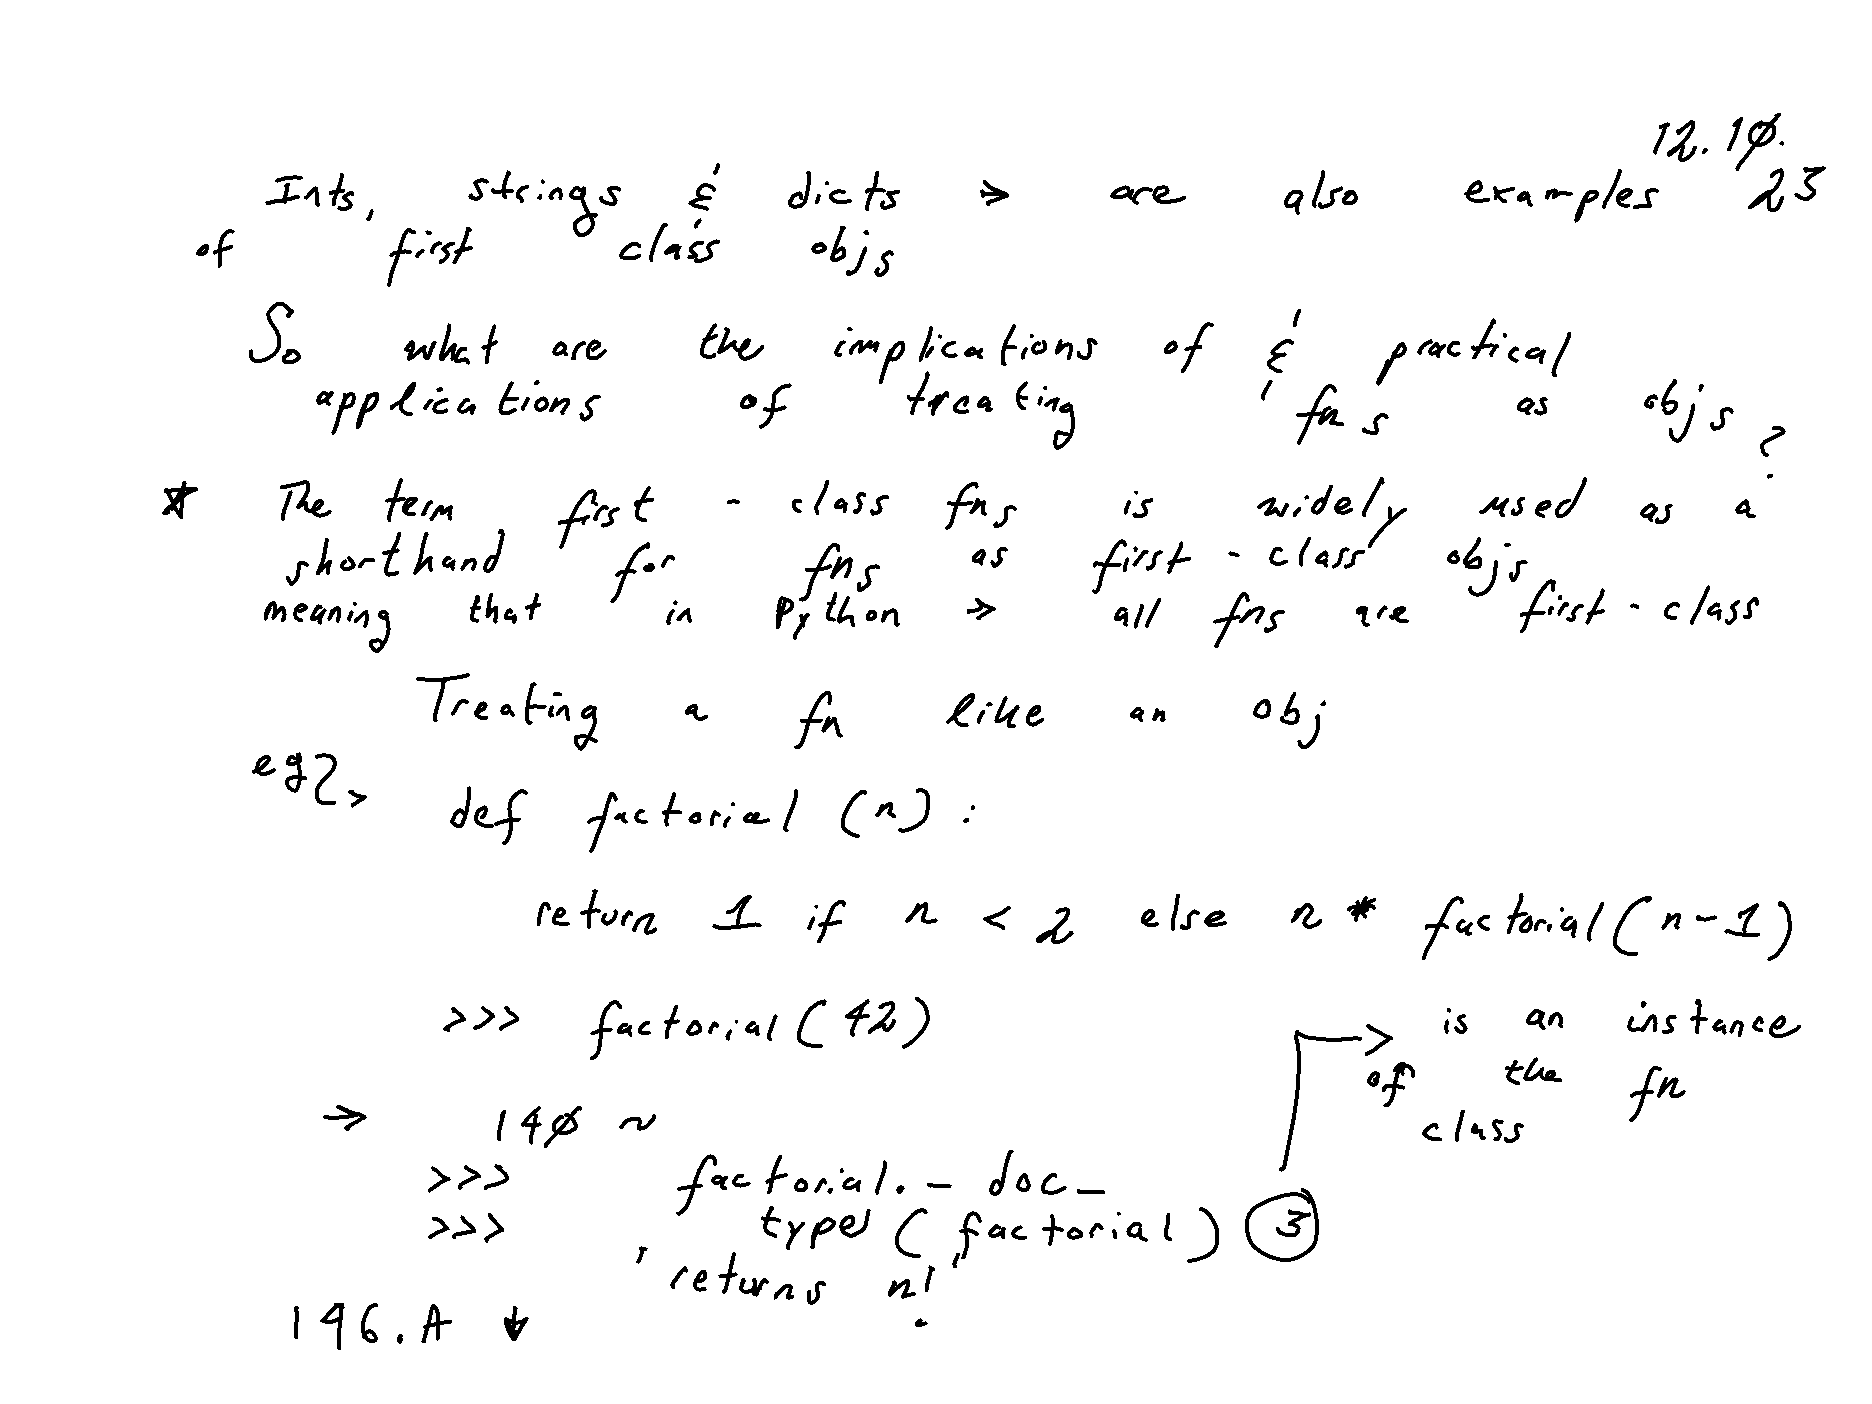 12.10.
Ints, strings & dicts → are also examples 23
of first class objs
So what are the implications of & practical
applications of treating 'fns as objs?
* The term first-class fns is widely used as a
shorthand for fns as first-class objs
meaning that in Python → all fns are first-class
Treating a fn like an obj
eg2>
def factorial (n):
return 1 if n < 2 else n * factorial(n-1)
>>> factorial(42)
is an instance
of the fn
class
→ 140 ~
>>> factorial._doc_
>>> type(factorial) 3
'returns n!'
146.A ↓